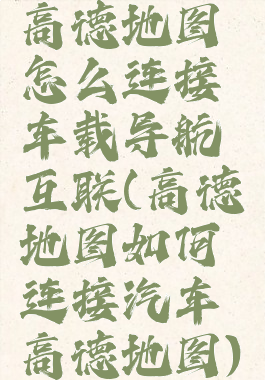 高德地图
怎么连接
车载导航
互联(高德
地图如何
连接汽车
高德地图)